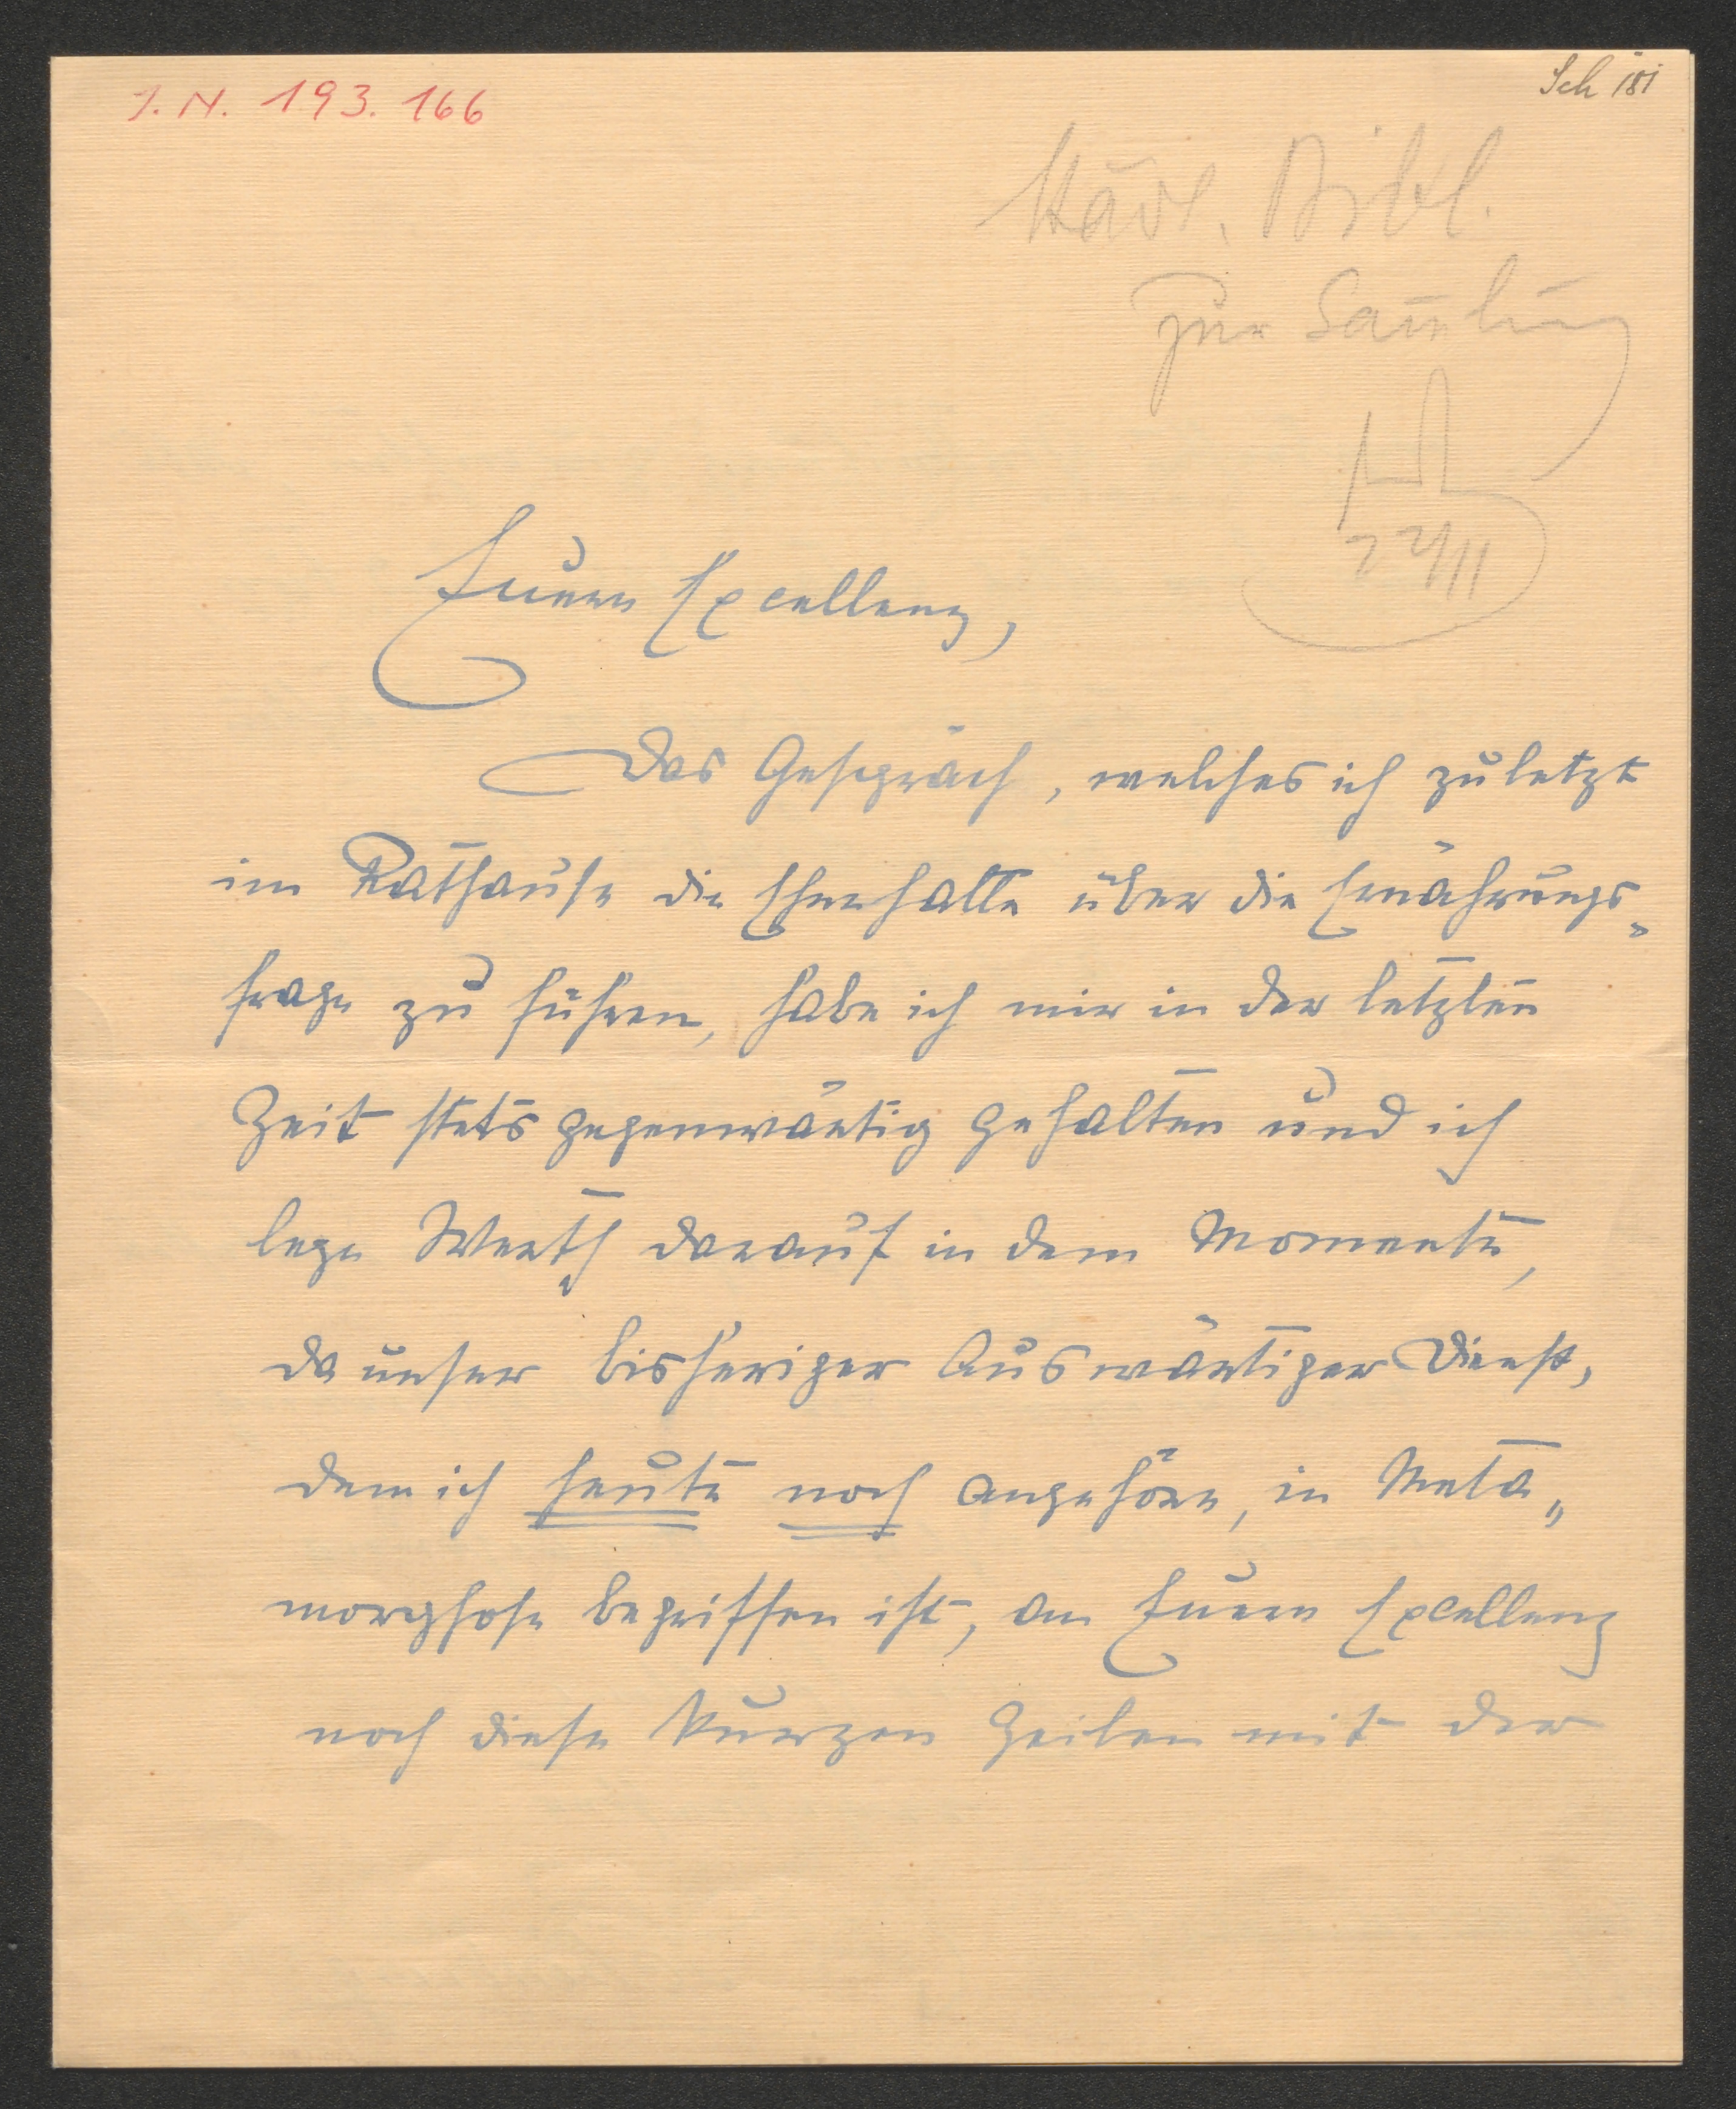 I.N. 193.166
Sch 181
Städt. Bibl.
zur Sam̅lung
22/11
Euere Excellenz,
Das Gespräch, welches ich zuletzt
im Rathause die Ehre hatte über die Ernährungs-
frage zu führen, habe ich mir in der letzten
Zeit stets gegenwärtig gehalten und ich
lege Werth darauf in dem Momente,
da unser bisheriger Auswärtiger Dienst,
dem ich heute noch angehöre, in Meta„
morphose begriffen ist, an Euere Excellenz
noch diese kurzen Zeilen mit der